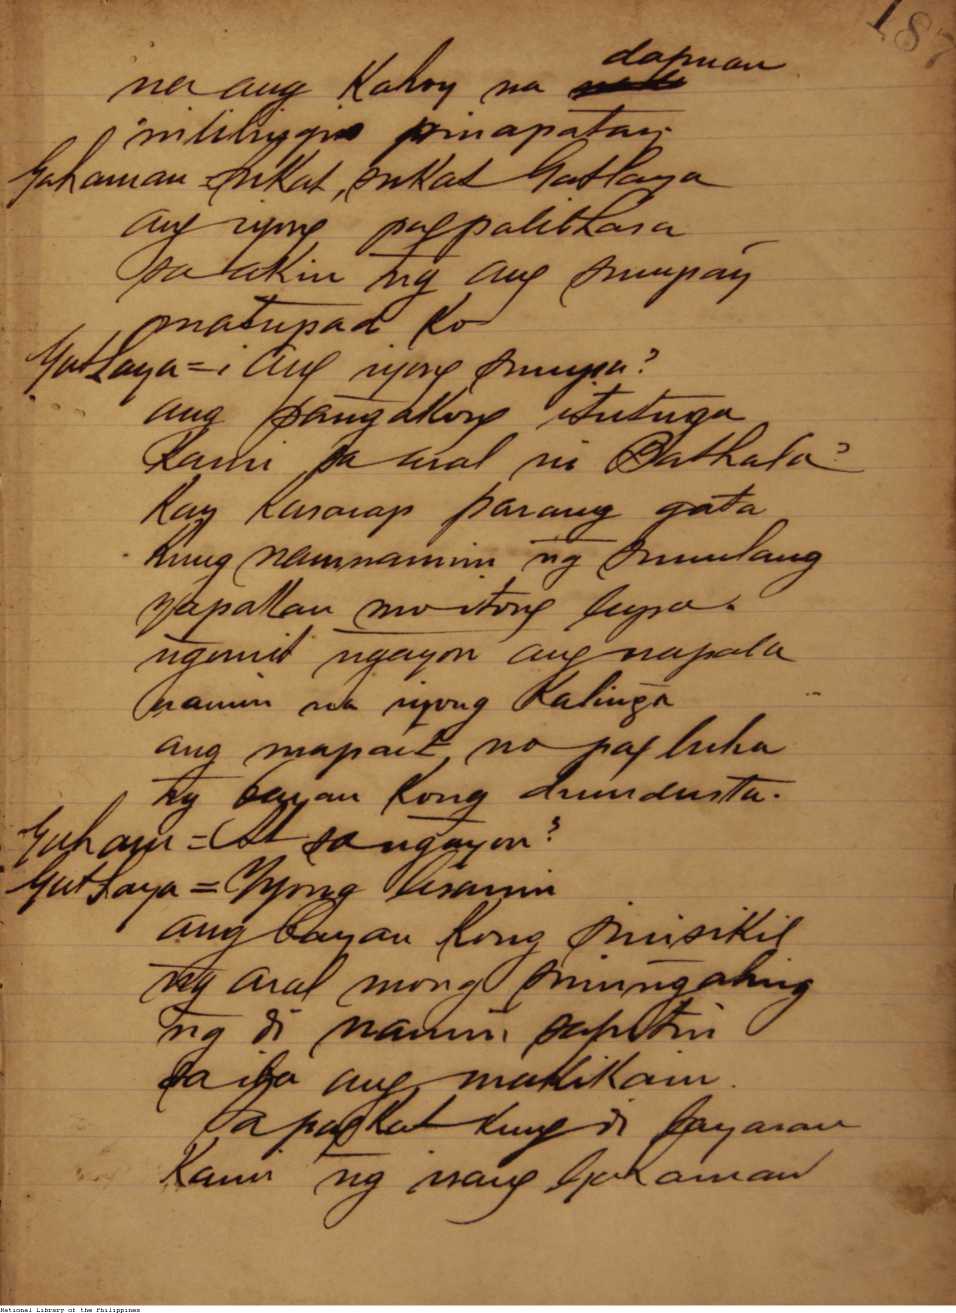 187
dapuan
na ang Kahoy na
pinapatay.
Gahaman = sukat, sukat Gatlaya
ang iyong pagpalibhasa
sa akin ng ang sumpáy
matupad ko
Gatlaya = i ang iyong sumpa?
ang pangakong itutuga
Kami sa aral ni Bathala?
Kay Kasarap parang gata
Kung namnamin ng sumulang
yapakan mo itong lupa.
ngunit ngayon ang napala
namin na iyong Kalinga
ang mapait na pag luha
ng bayan Kong dumdusta.
Gaham = At sa ngayon?
Gatlaya = Iyong lisanin
ang bayan Kong sinisikil
ng aral mong sinungaling
ng di namin sapitin
sa iba ang makikain.
Sapagkat kung di bayaran
Kami ng isang Gahaman
National Library of the Philippines